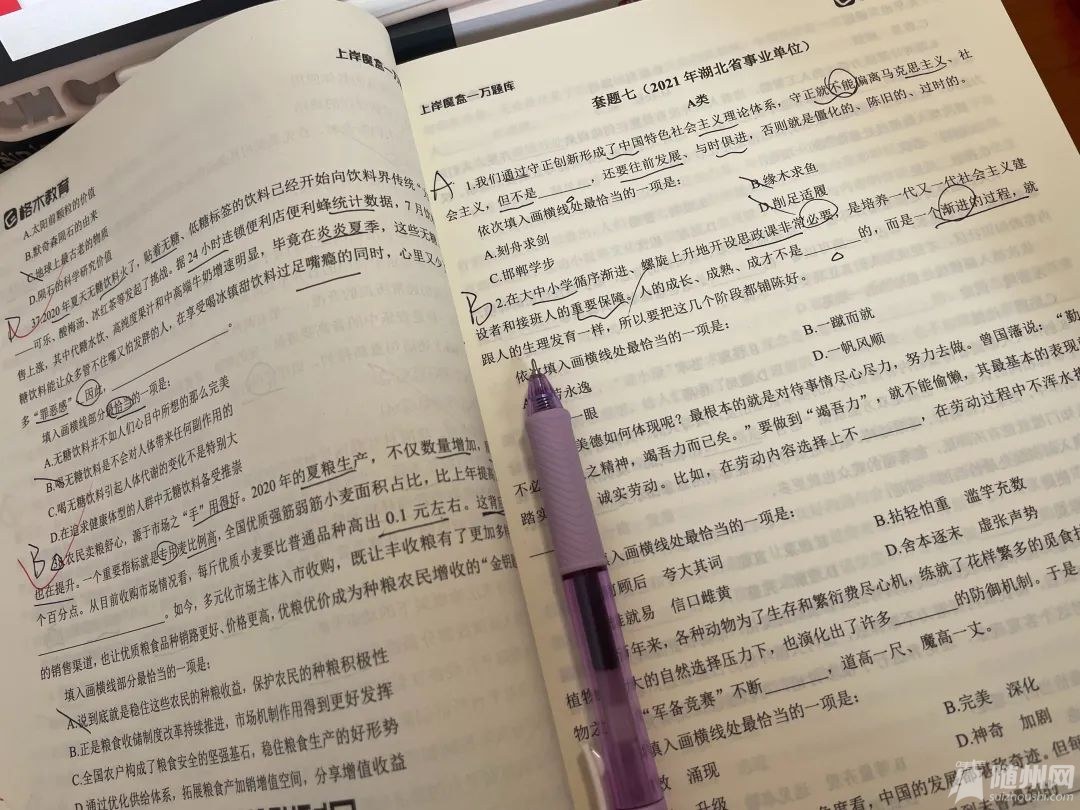 上岸魔盒—万
格木教育
A.太阳前颗粒的价值
B.默奇森陨石的由来
C.地球上最古老的物质
D.陨石的科学研究价值
D
37.2020年夏天无糖饮料火了，贴着无糖、低糖标签的饮料已经开始向饮料界传统
可乐、酸梅汤、冰红茶等发起了挑战。据24小时连锁便利店便利蜂统计数据，7月
售上涨，其中代糖水饮、高纯度果汁和中高端牛奶增速明显，毕竟在炎炎夏季，这些无糖
糖饮料能让众多管不住嘴又怕发胖的人，在享受喝冰镇甜饮料过足嘴瘾的同时，心里又少
多“罪恶感”。因此，________。
填入画横线部分最恰当的一项是：
A.无糖饮料并不如人们心目中所想的那么完美
B.喝无糖饮料是不会对人体带来任何副作用的
C.喝无糖饮料引起人体代谢的变化不是特别大
D.在追求健康体型的人群中无糖饮料备受推崇
B
农民卖粮舒心，源于市场之“手”用得好。2020年的夏粮生产，不仅数量增加，
也在提升。一个重要指标就是专用麦比例高，全国优质强筋弱筋小麦面积占比，比上年提高
个百分点。从目前收购市场情况看，每斤优质小麦要比普通品种高出0.1元左右。这背
________。如今，多元化市场主体入市收购，既让丰收粮有了更加多样
的销售渠道，也让优质粮食品种销路更好、价格更高，优粮优价成为种粮农民增收的“金钥
填入画横线部分最恰当的一项是：
A.说到底就是稳住这些农民的种粮收益，保护农民的种粮积极性
B.正是粮食收储制度改革持续推进，市场机制作用得到更好发挥
C.全国农户构成了粮食安全的坚强基石，稳住粮食生产的好形势
D.通过优化供给体系，拓展粮食产加销增值空间，分享增值收益
上岸魔盒—万题库
套题七（2021年湖北省事业单位）
A类
A
1.我们通过守正创新形成了中国特色社会主义理论体系，守正就不能偏离马克思主义、社
会主义，但不是________，还要往前发展、与时俱进，否则就是僵化的、陈旧的、过时的。
依次填入画横线处最恰当的一项是：
A.刻舟求剑 B.缘木求鱼
C.邯郸学步 D.削足适履
B
2.在大中小学循序渐进、螺旋上升地开设思政课非常必要，是培养一代又一代社会主义建
设者和接班人的重要保障。人的成长、成熟、成才不是________的，而是一个渐进的过程，就
跟人的生理发育一样，所以要把这几个阶段都铺陈好。
依 填入画横线处最恰当的一项是：
劳永逸 B.一蹴而就
一眼 D.一帆风顺
美德如何体现呢？最根本的就是对待事情尽心尽力，努力去做。曾国藩说：“勤
之精神，竭吾力而已矣。”要做到“竭吾力”，就不能偷懒，其最基本的表现
不必 诚实劳动。比如，在劳动内容选择上不________，在劳动过程中不浑水摸
踏实
填入画横线处最恰当的一项是：
顾后 夸大其词 B.拈轻怕重 滥竽充数
就易 信口雌黄 D.舍本逐末 虚张声势
年来，各种动物为了生存和繁衍费尽心机，练就了花样繁多的觅食技
植物 大的自然选择压力下，也演化出了许多________的防御机制。于是
物之 “军备竞赛”不断________，道高一尺、魔高一丈。
填入画横线处最恰当的一项是：
涌现 B.完美 深化
升级 D.神奇 加剧
度看，中国的发展
随州网
suizhoushi.com